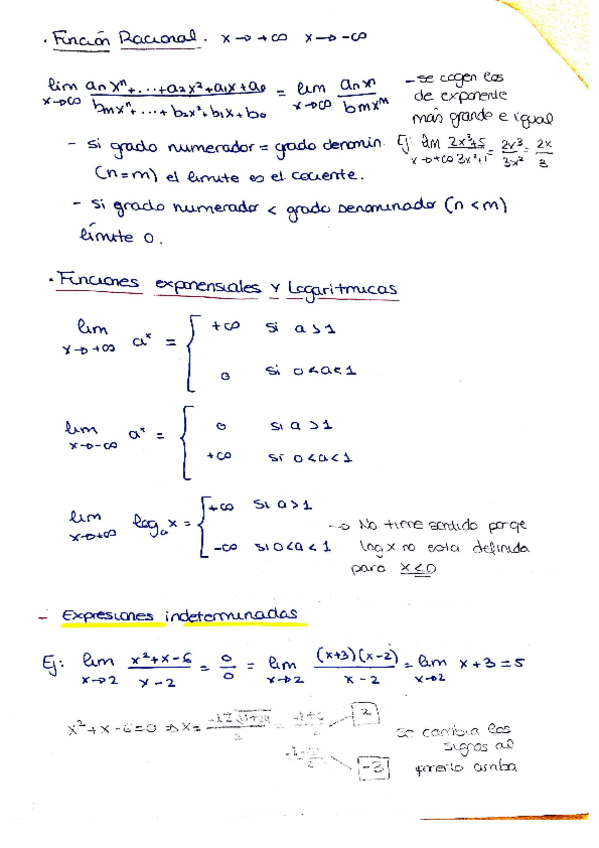 · Función Racional. x→+∞ x→-∞
lim x→∞ anxⁿ+...+a2x²+a1x+a0 / bmxⁿ+...+b2x²+b1x+b0 = lim x→∞ anxⁿ / bmxᵐ
- se cogen los
de exponente
más grande e igual
- si grado numerador = grado denomin. Ej lim x→+∞ 2x³+5 / 3x²+1 = 2x³ / 3x² = 2x / 3
(n=m) el límite es el cociente.
- si grado numerador < grado Denominador (n<m)
límite 0.
· Funciones exponensiales y Logaritmicas
lim x→+∞ aˣ = { +∞ si a>1
0 si 0<a<1
lim x→-∞ aˣ = { 0 si a>1
+∞ si 0<a<1
lim x→+∞ logₐ x = { +∞ si a>1
-∞ si 0<a<1
→ No tiene sentido porqe
log x no esta definida
para x≤0
- Expresiones indeterminadas
Ej: lim x→2 x²+x-6 / x-2 = 0/0 = lim x→2 (x+3)(x-2) / x-2 = lim x→2 x+3 = 5
x²+x-6=0 ⇒ x= 2
-3
se cambia los
signos al
ponerlo arriba